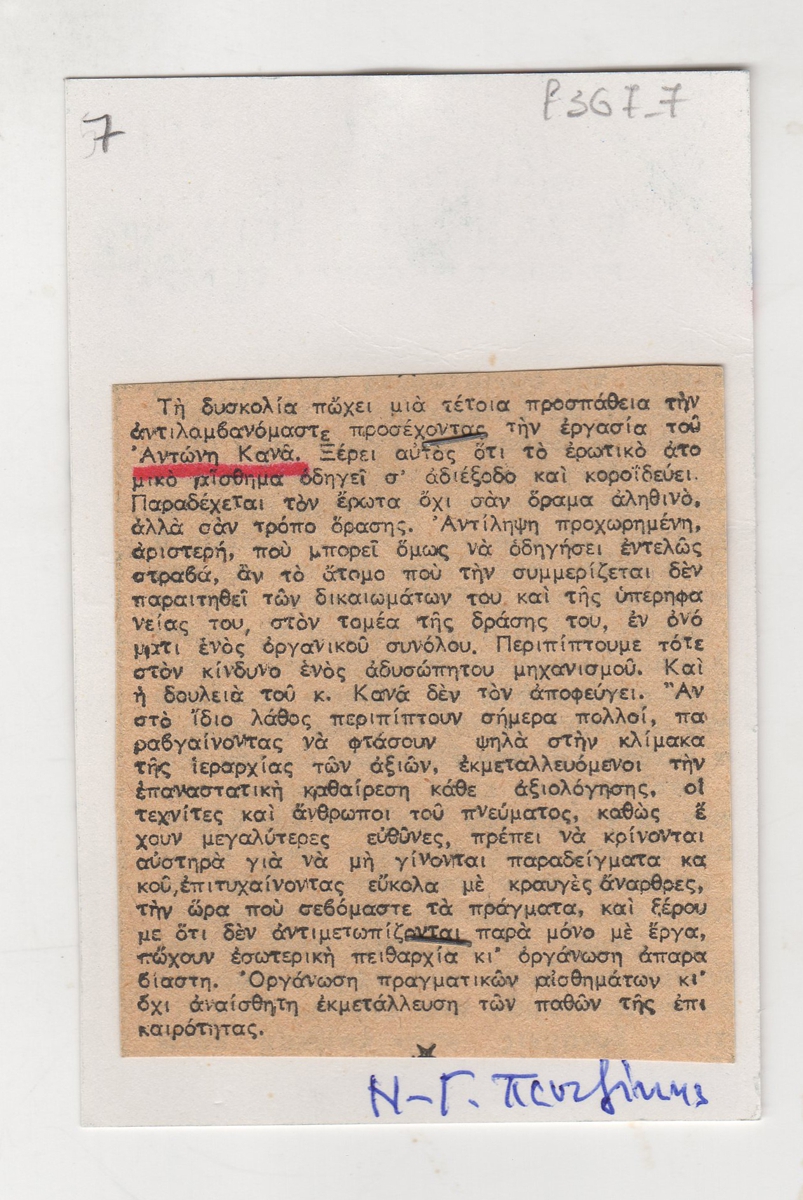 7
P367_7
Τὴ δυσκολία πὤχει μιὰ τέτοια προσπάθεια τὴν
ἀντιλαμβανόμαστε προσέχοντας τὴν ἐργασία τοῦ
Ἀντώνη Κανᾶ. Ξέρει αὐτὸς ὅτι τὸ ἐρωτικὸ ἀτο
μικὸ αἴσθημα ὁδηγεῖ σ' ἀδιέξοδο καὶ κοροϊδεύει.
Παραδέχεται τὸν ἔρωτα ὄχι σὰν ὅραμα ἀληθινὸ,
ἀλλὰ σὰν τρόπο δρασης. Ἀντίληψη προχωρημένη,
ἀριστερή, ποὺ μπορεῖ ὅμως νὰ ὁδηγήσει ἐντελῶς
στραβά, ἂν τὸ ἄτομο ποὺ τὴν συμμερίζεται δὲν
παραιτηθεῖ τῶν δικαιωμάτων του καὶ τῆς ὑπερηφα
νείας του, στὸν τομέα τῆς δράσης του, ἐν ὀνό
ματι ἑνὸς ὀργανικοῦ συνόλου. Περιπίπτουμε τότε
στὸν κίνδυνο ἑνὸς ἀδυσώπητου μηχανισμοῦ. Καὶ
ἡ δουλειὰ τοῦ κ. Κανᾶ δὲν τὸν ἀποφεύγει. Ἂν
στὸ ἴδιο λάθος περιπίπτουν σήμερα πολλοί, πα
ραβγαίνοντας νὰ φτάσουν ψηλὰ στὴν κλίμακα
τῆς ἱεραρχίας τῶν ἀξιῶν, ἐκμεταλλευόμενοι τὴν
ἐπαναστατικὴ καθαίρεση κάθε ἀξιολόγησης, οἱ
τεχνίτες καὶ ἄνθρωποι τοῦ πνεύματος, καθὼς ἔ
χουν μεγαλύτερες εὐθῦνες, πρέπει νὰ κρίνονται
αὐστηρὰ γιὰ νὰ μὴ γίνονται παραδείγματα κα
κοῦ, ἐπιτυχαίνοντας εὔκολα μὲ κραυγὲς ἄναρθρες,
τὴν ὥρα ποὺ σεβόμαστε τὰ πράγματα, καὶ ξέρου
με ὅτι δὲν ἀντιμετωπίζονται παρὰ μόνο μὲ ἔργα,
πὤχουν ἐσωτερικὴ πειθαρχία κι' ὀργάνωση ἀπαρα
βίαστη. Ὀργάνωση πραγματικῶν αἰσθημάτων κι'
ὄχι ἀναίσθητη ἐκμετάλλευση τῶν παθῶν τῆς ἐπι
καιρότητας.
Ν-Γ. Πεντζίκης